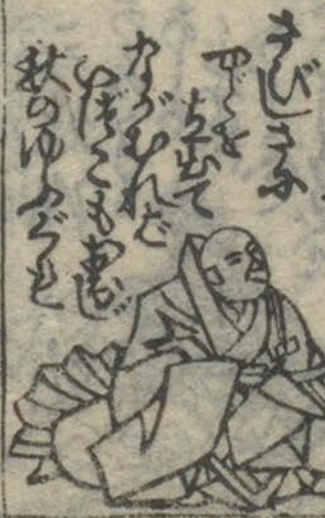 さびしさに
やどを
立出て
ながむれば
いづこもおなじ
秋のゆふぐれ